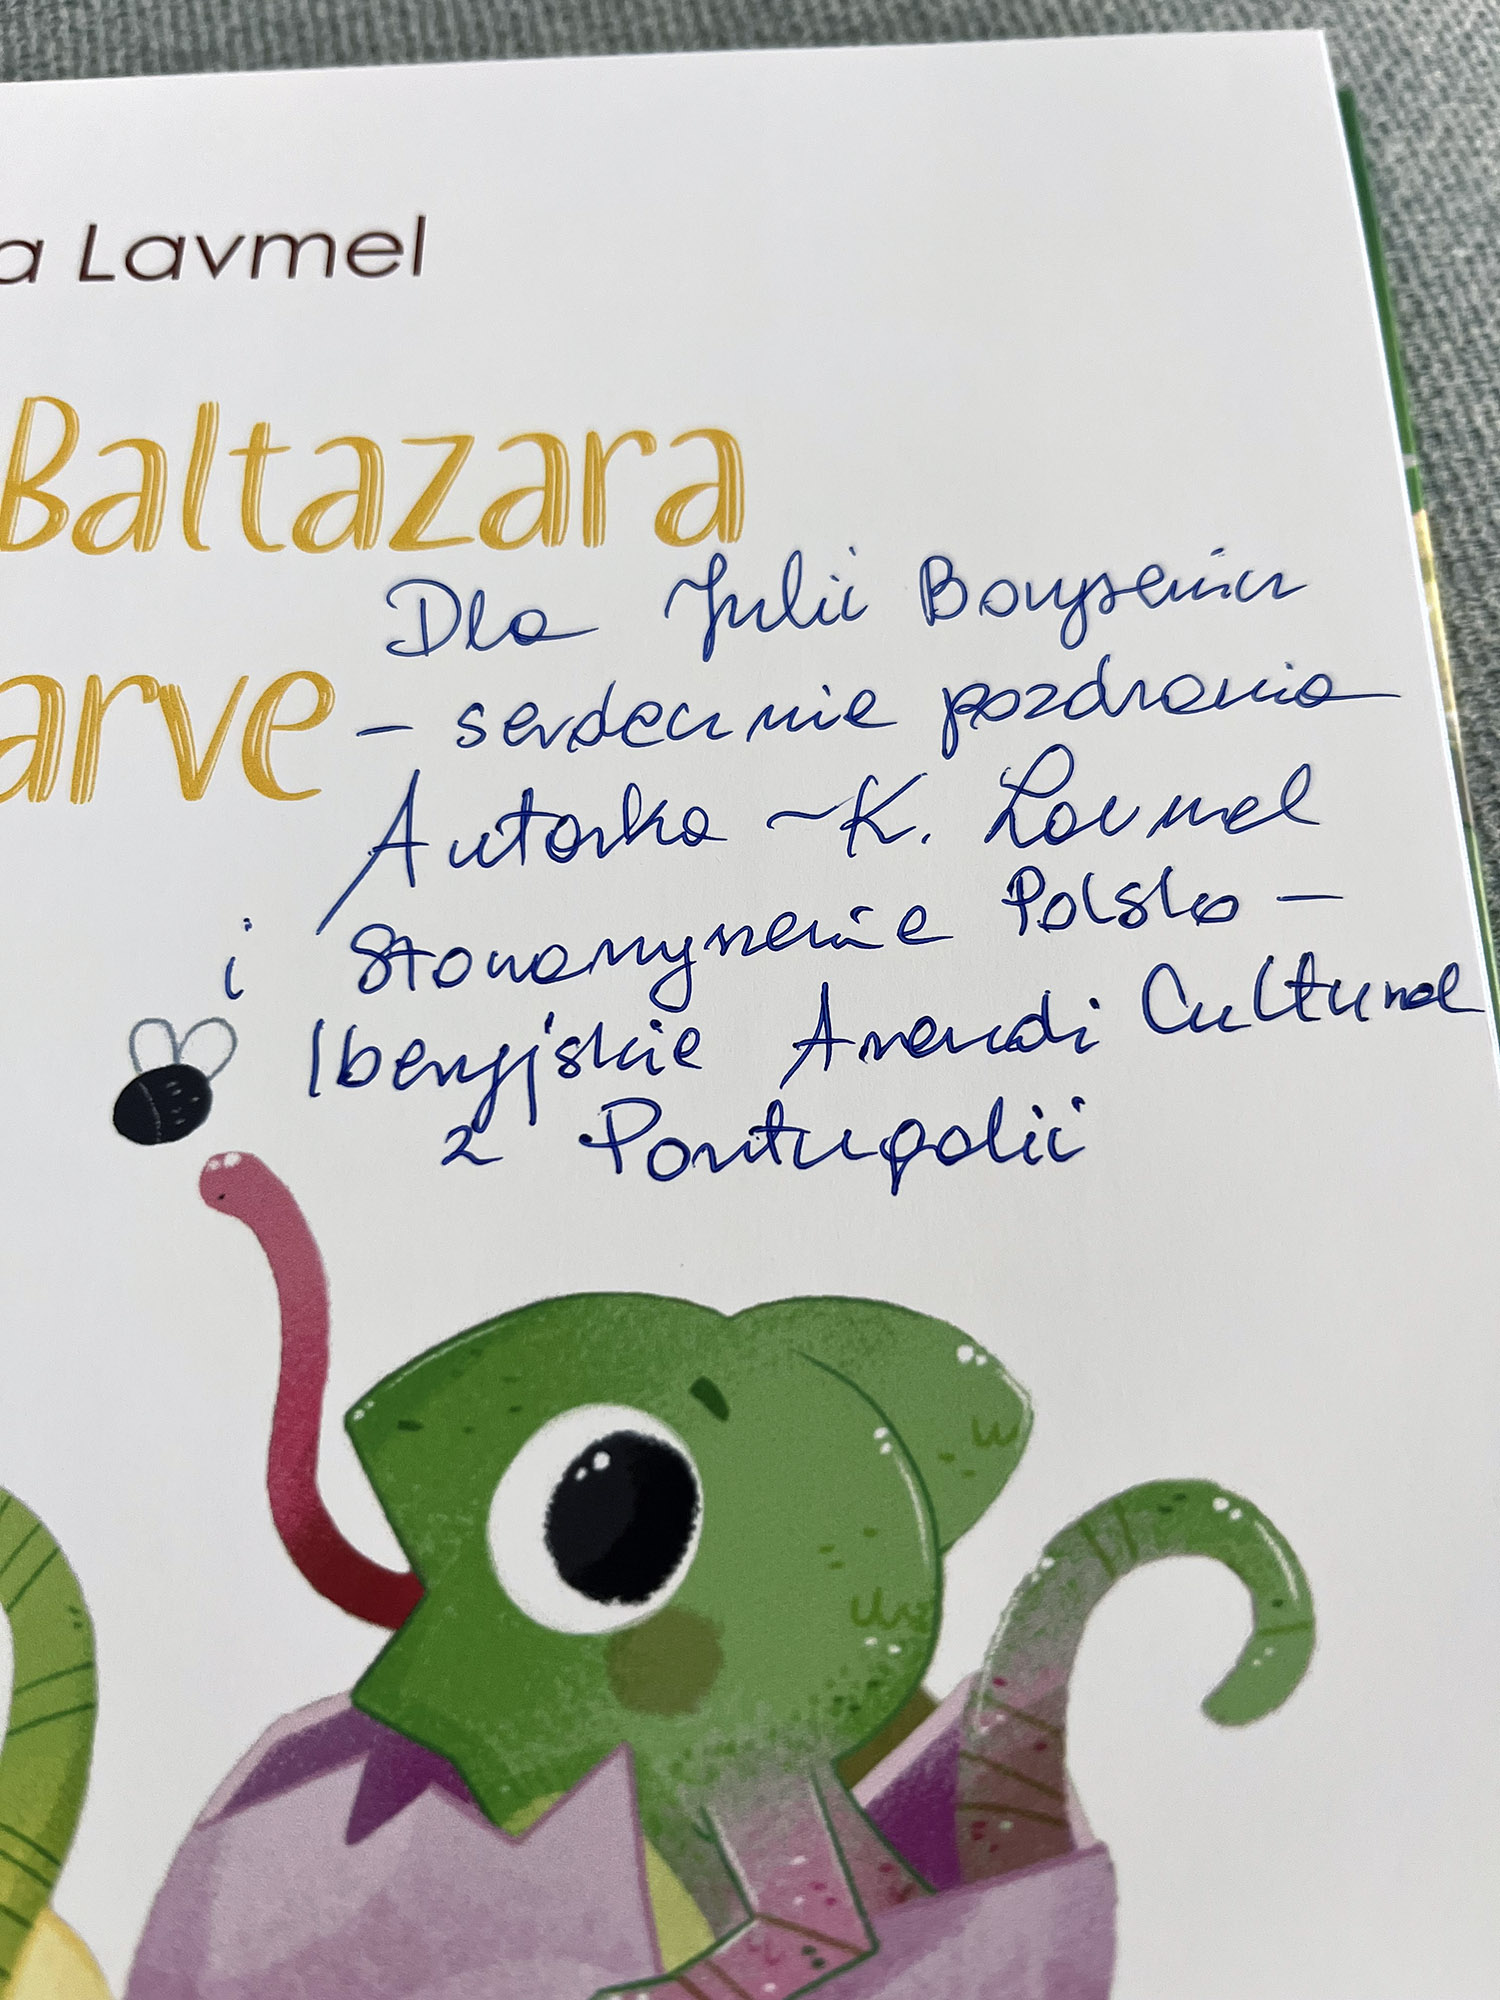 a Lavmel
Baltazara
arve
Dla Julii
– serdecznie pozdrawia
Autorka ~ K. Lavmel
i Stowarzyszenie Polsko –
Iberyjskie Arendi Cultural
z Portugalii